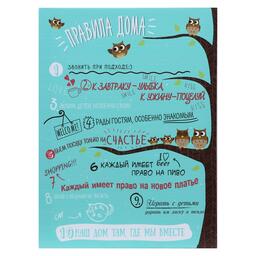 ПРАВИЛА ДОМА
1 ЗВОНИТЬ ПРИ ПОДХОДЕ:)
2 К ЗАВТРАКУ - УЛЫБКА,
К УЖИНУ - ПОЦЕЛУЙ
LOVE
KISS
3
WELCOME!
4 РАДЫ ГОСТЯМ, ОСОБЕННО ЗНАКОМЫМ
5 БЬЕМ ПОСУДУ ТОЛЬКО НА СЧАСТЬЕ
SHOPPING!!!
6 КАЖДЫЙ ИМЕЕТ
ПРАВО НА ПИВО
BEER
7 Каждый имеет право на новое платье
8
9 Играть с детьми
10 НАШ ДОМ ТАМ, ГДЕ МЫ ВМЕСТЕ